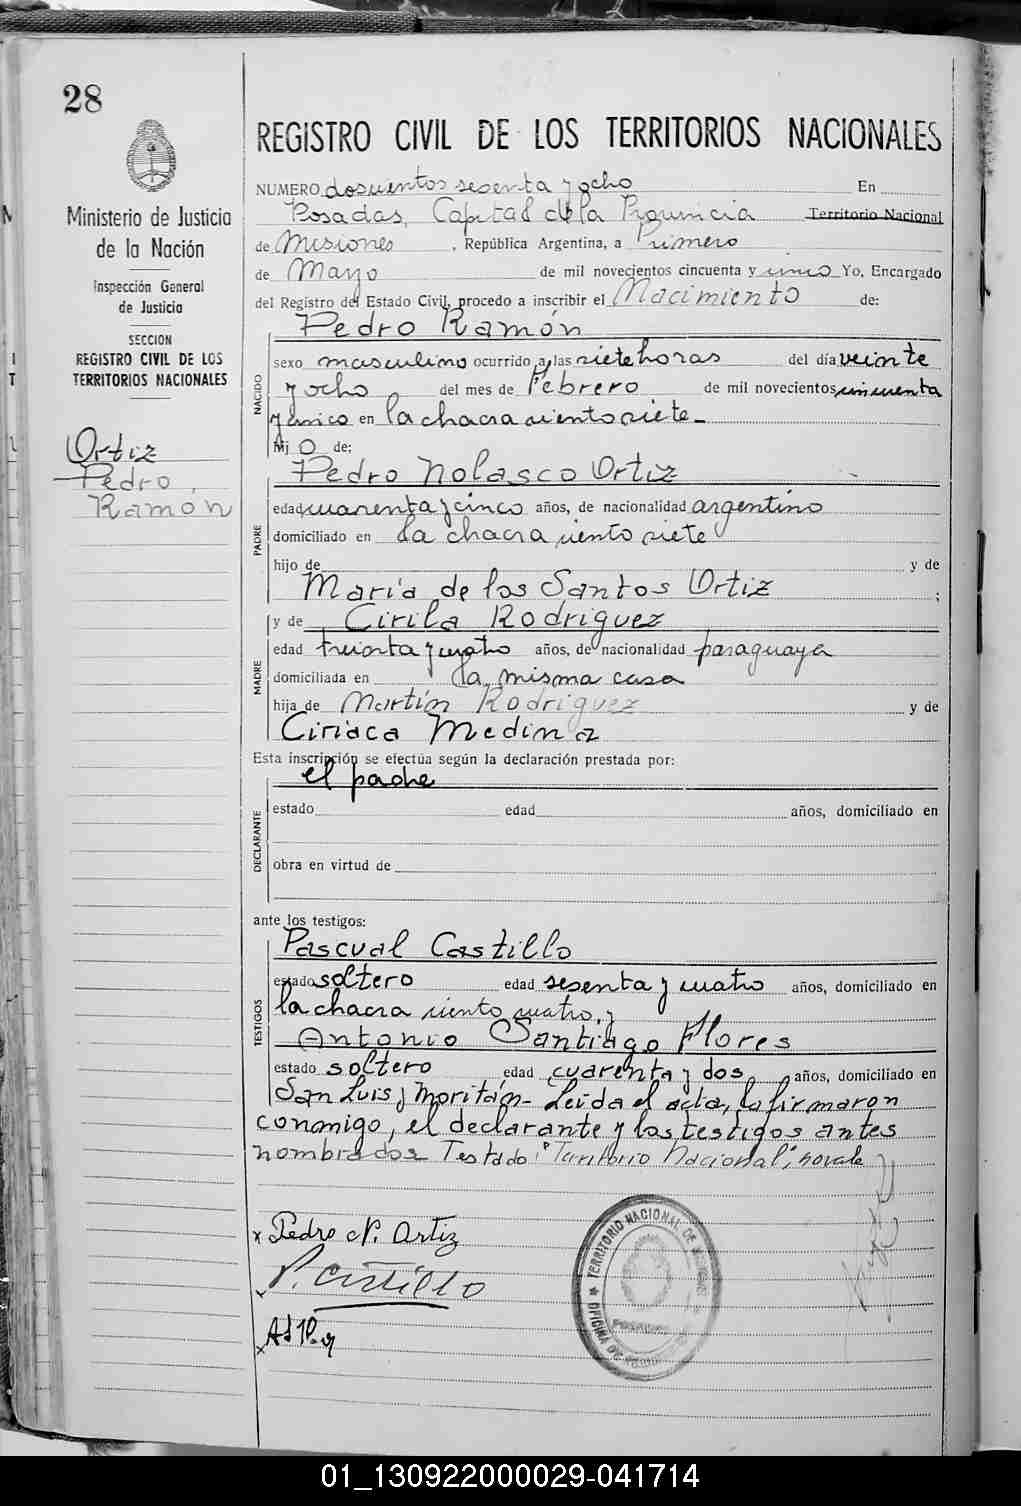 28
Ministerio de Justicia
de la Nación
Inspección General
de Justicia
SECCION
REGISTRO CIVIL DE LOS
TERRITORIOS NACIONALES
Ortiz
Pedro
Ramón
REGISTRO CIVIL DE LOS TERRITORIOS NACIONALES
NUMERO doscientos sesenta y ocho En
Posadas, Capital de la Provincia Territorio Nacional
de Misiones, República Argentina, a Primero
de Mayo de mil novecientos cincuenta y cinco Yo, Encargado
del Registro del Estado Civil, procedo a inscribir el Nacimiento de:
NACIDO
Pedro Ramón
sexo masculino ocurrido a las siete horas del día veinte
y ocho del mes de Febrero de mil novecientos cincuenta
y cinco en la chacra ciento siete
hijo de:
PADRE
Pedro Nolasco Ortiz
edad cuarenta y cinco años, de nacionalidad argentino
domiciliado en la chacra ciento siete
hijo de y de
María de los Santos Ortiz ;
MADRE
y de Cirila Rodriguez
edad treinta y cuatro años, de nacionalidad paraguaya
domiciliada en la misma casa
hija de Martín Rodriguez y de
Ciriaca Medina
Esta inscripción se efectúa según la declaración prestada por:
DECLARANTE
el padre
estado edad años, domiciliado en
obra en virtud de
ante los testigos:
TESTIGOS
Pascual Castillo
estado soltero edad sesenta y cuatro años, domiciliado en
la chacra ciento cuatro, y
Antonio Santiago Flores
estado soltero edad cuarenta y dos años, domiciliado en
San Luis y Moritán- Leída el acta, la firmaron
conmigo, el declarante y los testigos antes
nombrados Testado: "Territorio Nacional", no vale
x Pedro N. Ortiz
P. Castillo
TERRITORIO NACIONAL DE MISIONES
OFICINA DE
POSADAS
01_130922000029-041714